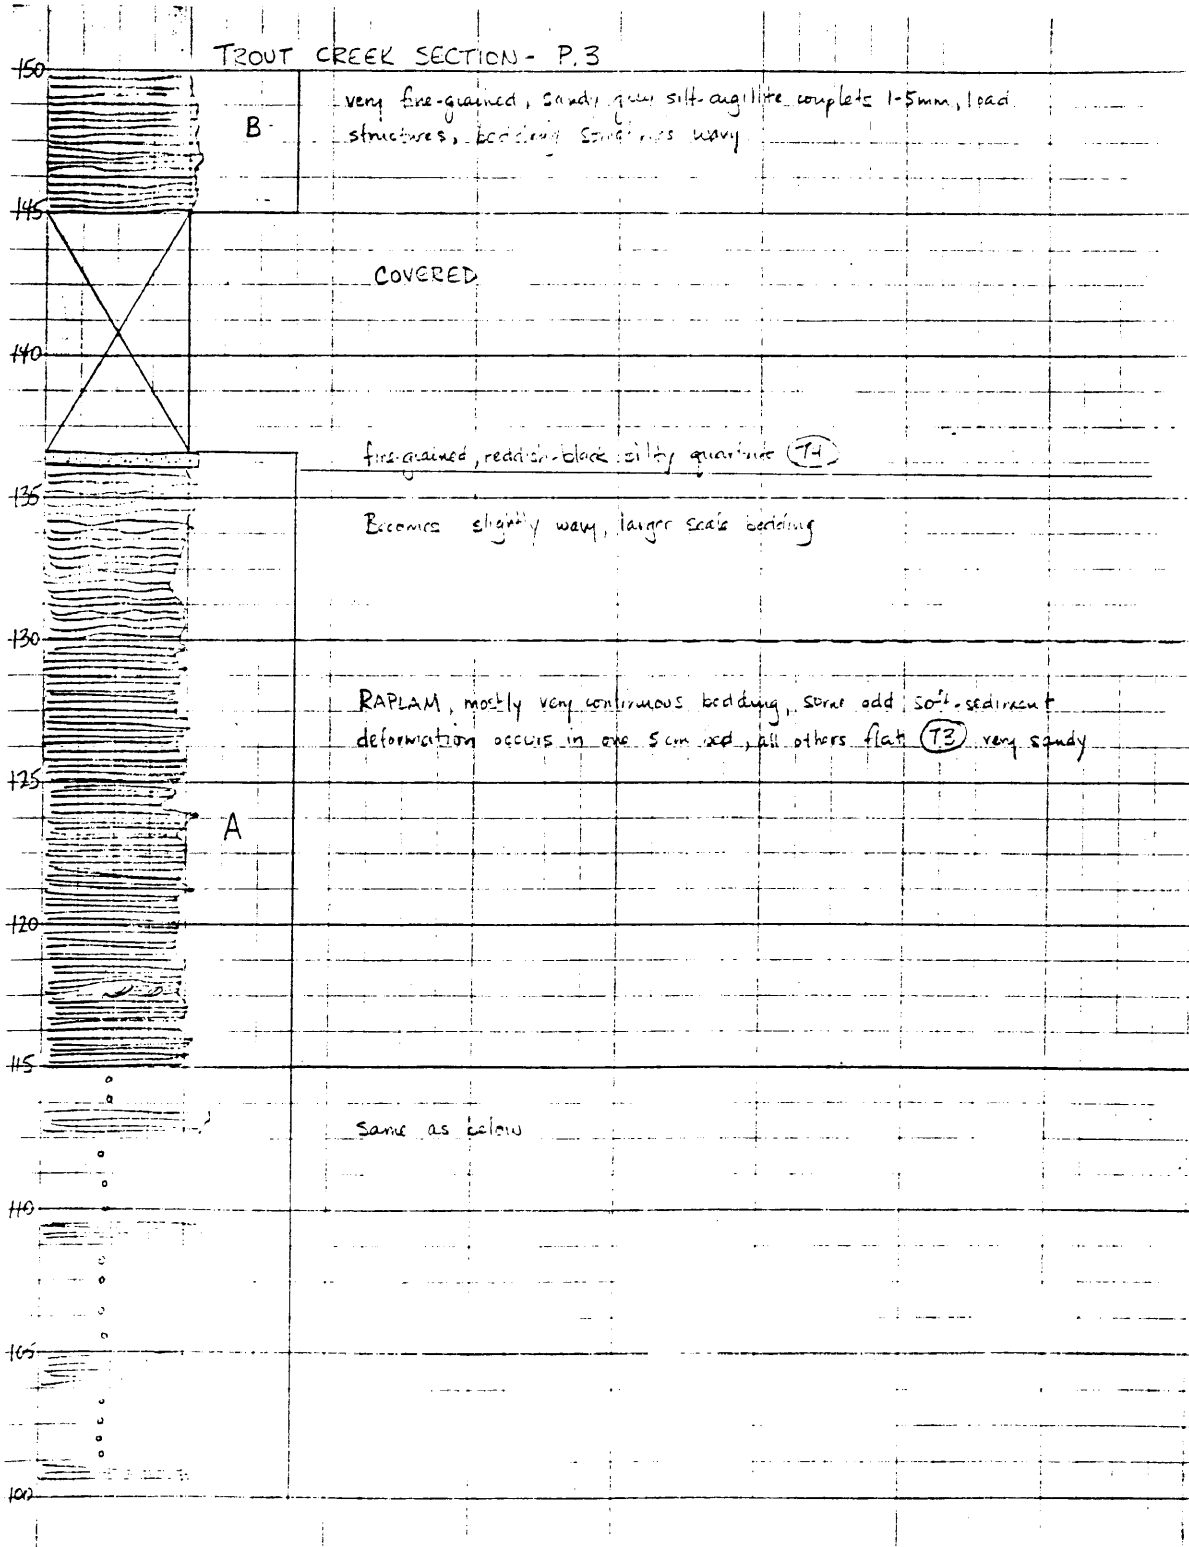 TROUT CREEK SECTION - P.3
150
very fine-grained, sandy grey silt-argillite couplets 1-5mm, load
B
structures, bedding sometimes wavy
145
COVERED
140
fine-grained, reddish-black silty quartzite T4
135
Becomes slightly wavy, larger scale bedding
130
RAPLAM, mostly very continuous bedding, some odd soft-sediment
deformation occurs in one 5 cm bed, all others flat T3 very sandy
125
A
120
115
Same as below
110
105
100